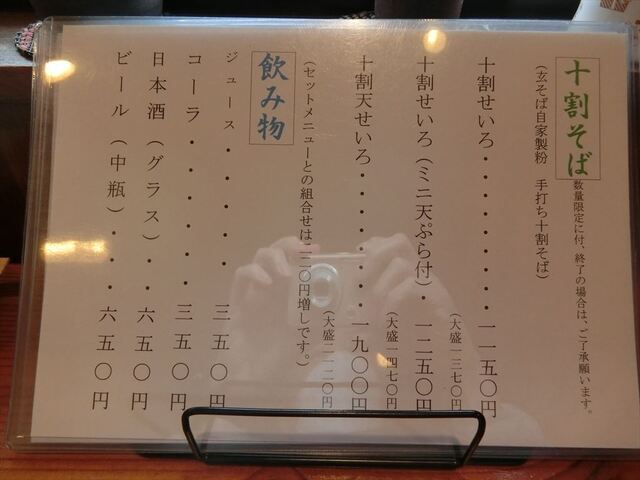 十割そば 数量限定に付、終了の場合は、ご了承願います。
(玄そば自家製粉　手打ち十割そば)
十割せいろ・・・・・・・・・一一五〇円
(大盛一三七〇円)
十割せいろ(ミニ天ぷら付)・一二五〇円
(大盛一四七〇円)
十割天せいろ・・・・・・・・一九〇〇円
(大盛二一二〇円)
(セットメニューとの組合せは二二〇円増しです。)
飲み物
ジュース・・・・・・三五〇円
コーラ・・・・・・・三五〇円
日本酒(グラス)・・六五〇円
ビール(中瓶)・・・六五〇円